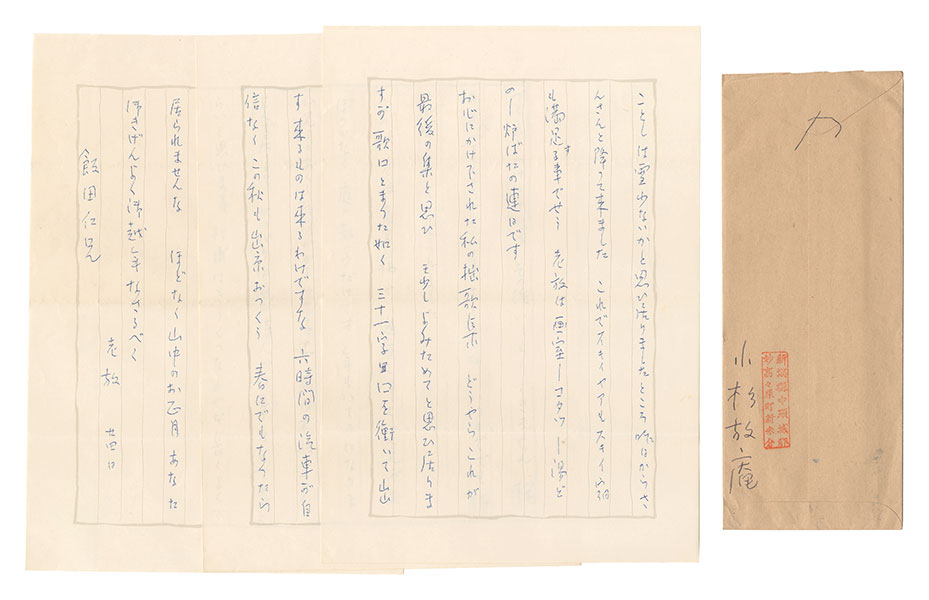 ことしは雪少ないかと思ひ居りましたところ 昨日からさ
んさんと降つて来ました これでスキイヤアもスキイ宿
も満足する事でせう 老放は画室ーコタツー湯ど
のー炉ばたの連日です
お心にかけ下された私の拙歌集 どうやらこれが
最後の集と思ひ も少しよみためてと思ひ居りま
すが 歌口とまつた如く 三十一字 口を衝いて出
す 来るものは来るわけですな 六時間の汽車が自
信なく この秋も出京おつくう 春にでもならなら
居られませんな ほどなく山中のお正月 あなた
御きげんよく御越年なさるべく
老放 廿四日
飯田仁兄
小杉放庵
新潟県中頸城郡
妙高々原町新赤倉